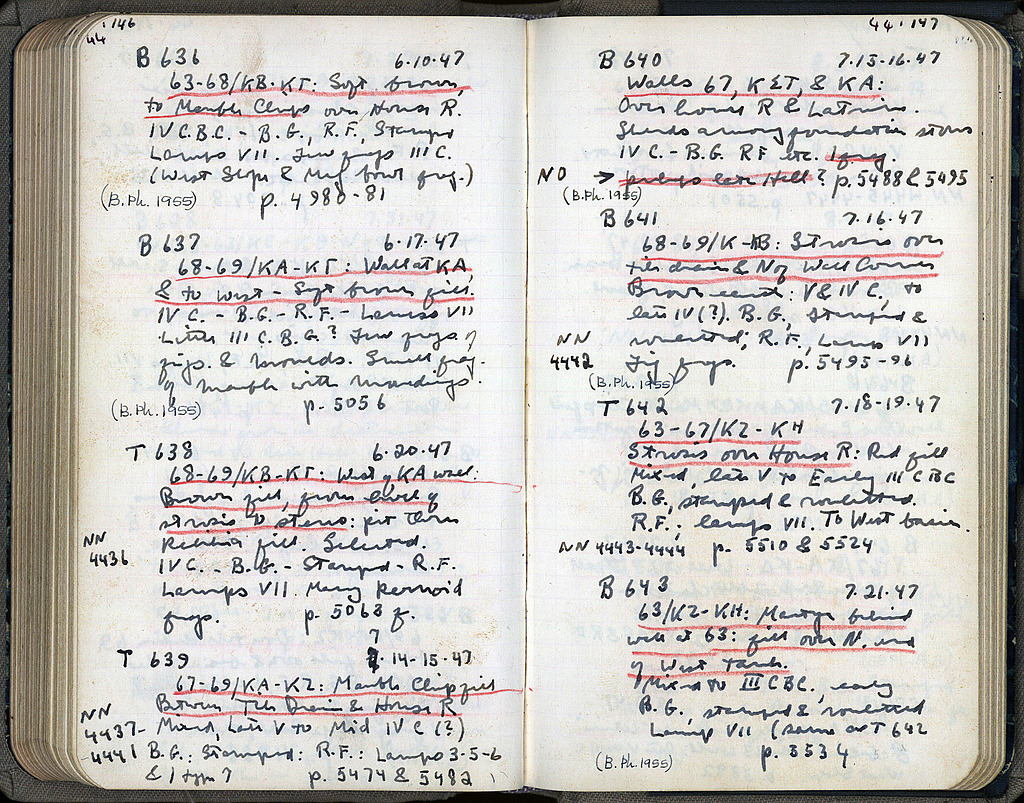 44 · 146
B 636 6·10·47
63-68/KB-KΓ: Soft brown,
to Marble Chips over House R.
IV C.B.C. - B.G., R.F., Stamped
Lamps VII. Few frags III C.
(West Slope & Meg. bowl frag.)
(B.Ph. 1955) p. 4980-81
B 637 6·17·47
68-69/KA-KΓ: Wall at KA
& to West - Soft brown fill.
IV C. - B.G. - R.F. - Lamps VII
Little III C. B.G.? Few frags of
figs. & moulds. Small frag.
of marble with mouldings.
(B.Ph. 1955) p. 5056
T 638 6·20·47
68-69/KB-KΓ: West of KA wall:
Brown fill, from level of
strosis to stereo: pit
fill. Selected.
NN 4436
IV C. - B.G. - Stamped - R.F.
Lamps VII. Many
frags. p. 5063 f.
T 639 7·14-15·47
67-69/KA-KZ: Marble Chip fill
Between Tile Drain & House R
NN 4437-4441
Mixed, Late V to Mid IV C (?)
B.G.: Stamped: R.F.: Lamps 3-5-6
& 1 type ? p. 5474 & 5482
44 · 147
B 640 7·15-16·47
Walls 67, KΣT, & KA:
Over house R & Latrine.
Sherds among foundation stones
IV C. - B.G. RF etc. 1 frag.
NO → perhaps late Hell? p. 5488 & 5495
(B.Ph. 1955)
B 641 7·16·47
68-69/K-KB: Strosis over
tile drain & N of Wall Corner
Brown earth: V & IV C. to
late IV (?). B.G., Stamped &
rouletted; R.F., Lamps VII
NN 4442
Fig frags. p. 5495-96
(B.Ph. 1955)
T 642 7·18-19·47
63-67/KZ-KH
Strosis over House R: Red fill
Mixed, late V to Early III C BC
B.G., stamped & rouletted.
R.F.: lamps VII. To West basin.
NN 4443-4444 p. 5510 & 5524
B 643 7·21·47
63/KZ-KH: behind
wall at 63: fill over N. end
of West Tank.
Mixed to III C BC., early
B.G., stamped & rouletted
Lamp VII (same as T 642
(B.Ph. 1955) p. 5534